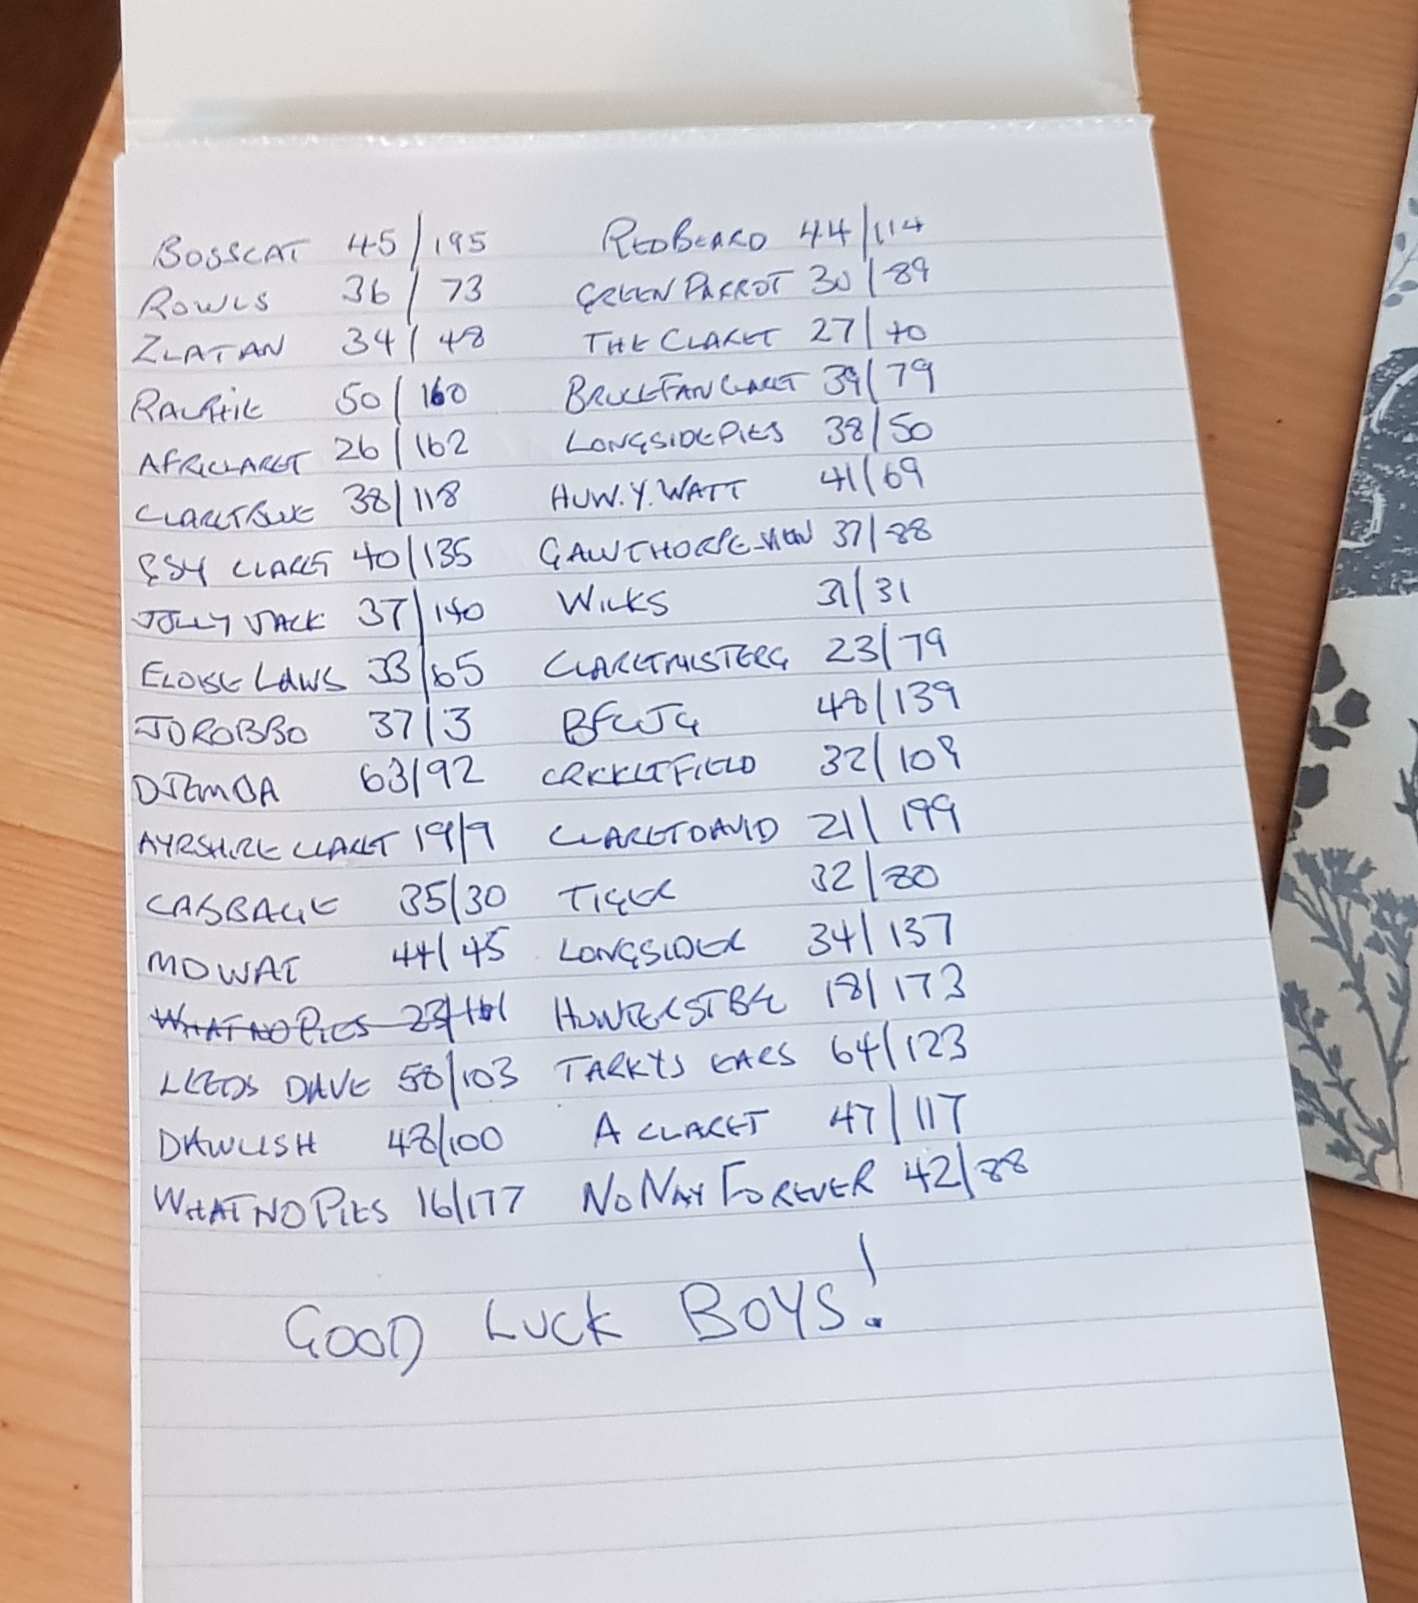 BOSSCAT 45/195 REDBEARD 44/114
ROWLS 36/73 GREEN PARROT 30/89
ZLATAN 34/48 THE CLARET 27/70
RALPHIE 50/160 BRUCEFANCLARET 39/79
AFRICLARET 26/162 LONGSIDEPIES 38/50
CLARETBLUE 38/118 HUW.Y.WATT 41/69
GSY CLARET 40/135 GAWTHORPE_VIEW 37/88
JOLLY JACK 37/140 WILKS 31/31
ELOISE LAWS 33/65 CLARETMISTERG 23/79
JOROBBO 37/3 BFCJG 48/139
DJEMBA 63/92 CRICKETFIELD 32/109
AYRSHIRE CLARET 19/9 CLARETDAVID 21/199
CABBAGE 35/30 TIGER 32/80
MOWAT 44/45 LONGSIDER 34/137
WHATNOPIES HUNTERSTBG 18/173
LEEDS DAVE 58/103 TARKYS EARS 64/123
DAWLISH 48/100 A CLARET 47/117
WHATNOPIES 16/177 NONAYFOREVER 42/88
GOOD LUCK BOYS!